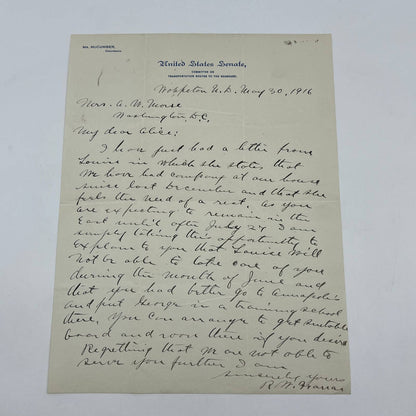 Mr. McCUMBER,
Chairman.
United States Senate,
COMMITTEE ON
TRANSPORTATION ROUTES TO THE SEABOARD.
Wahpeton N.D. May 30, 1916
Mrs. A. W. Morse
Washington, D.C,
My dear Alice:
I have just had a letter from
Louise in which she states that
We have had company at our house
since last December and that she
feels the need of a rest. As you
are expecting to remain in the
East until after July 27 I am
simply taking this opportunity to
explain to you that Louise will
not be able to take care of you
during the month of June and
that you had better go to Annapolis
and put George in a training school
there. You can arrange to get suitable
board and room there if you desire
Regretting that we are not able to
serve you further I am
Sincerely yours
R. W.